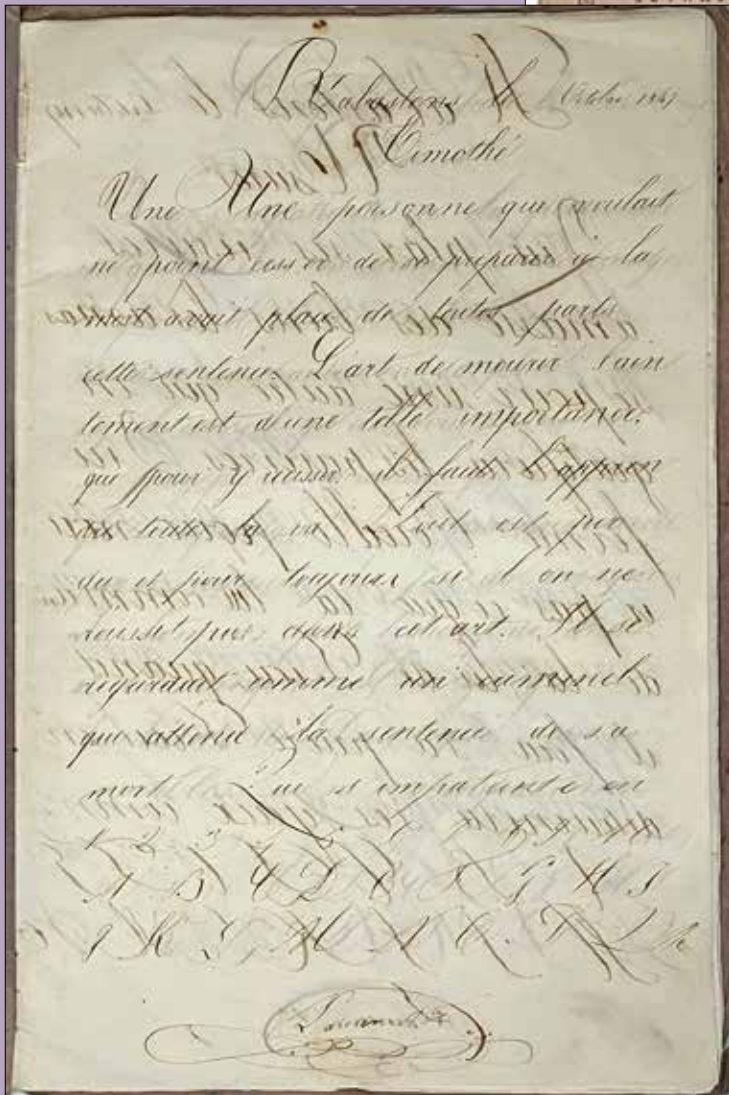 Rabastens le Octobre 1867
Timothé
Une Une personne qui voulait
ne point cesser de se préparer à la
mort avait placé de toutes parts
cette sentence. L'art de mourir sain
tement est d'une telle importance,
que pour y réussir il faut l'appren
dre toute la vie. Tout est per
du et pour toujours si l'on ne
réussit pas dans cet art. Il se
regardait comme un criminel
qui attend la sentence de sa
mort et s'impatiente en
A B C D E F G H I
J K L M N O P